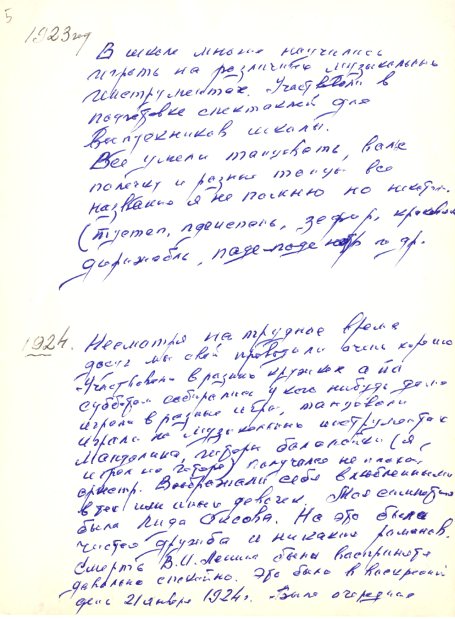 5
1923 год
В школе многие научились
играть на различных музыкальных
инструментах. Участвовали в
подготовке спектаклей для
выпускников школы.
Все умели танцовать, вальс
полечку и разные танцы все
названия я не помню но некотор.
(тустеп, падеспань, зефир,
дирижабль, и др.
1924. Несмотря на трудное время
досуг мы свой проводили очень хорошо
Участвовали в разных кружках а по
субботам собирались у кого нибудь дома
играли в разные игры, танцовали
играли на музыкальных инструментах
Мандолина, гитары балалайки (я
играл на гитаре) получался неплохой
оркестр. Воображали себя влюбленными
в тех или иных девочек. Моя симпатия
была Лида. Но это была
чистая дружба и никаких романов.
Смерть В.И. Ленина была воспринята
довольно спокойно. Это было в воскресный
день 21 января 1924 г. Было очередное